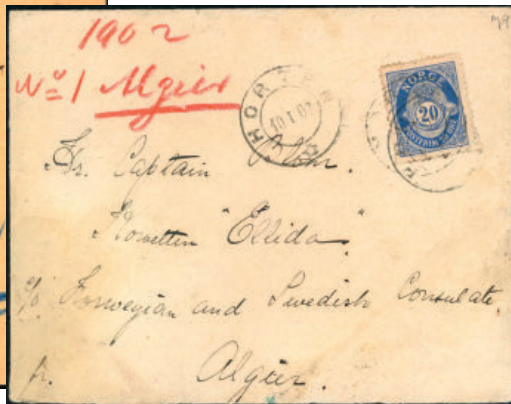 1902
No 1 Algier
HORTEN
10 I 02
NORGE
20
POSTFRIM 20 ØRE
Hr. Captain
Korvetten "Ellida"
c/o Norwegian and Swedish Consulate
fr. Algier.